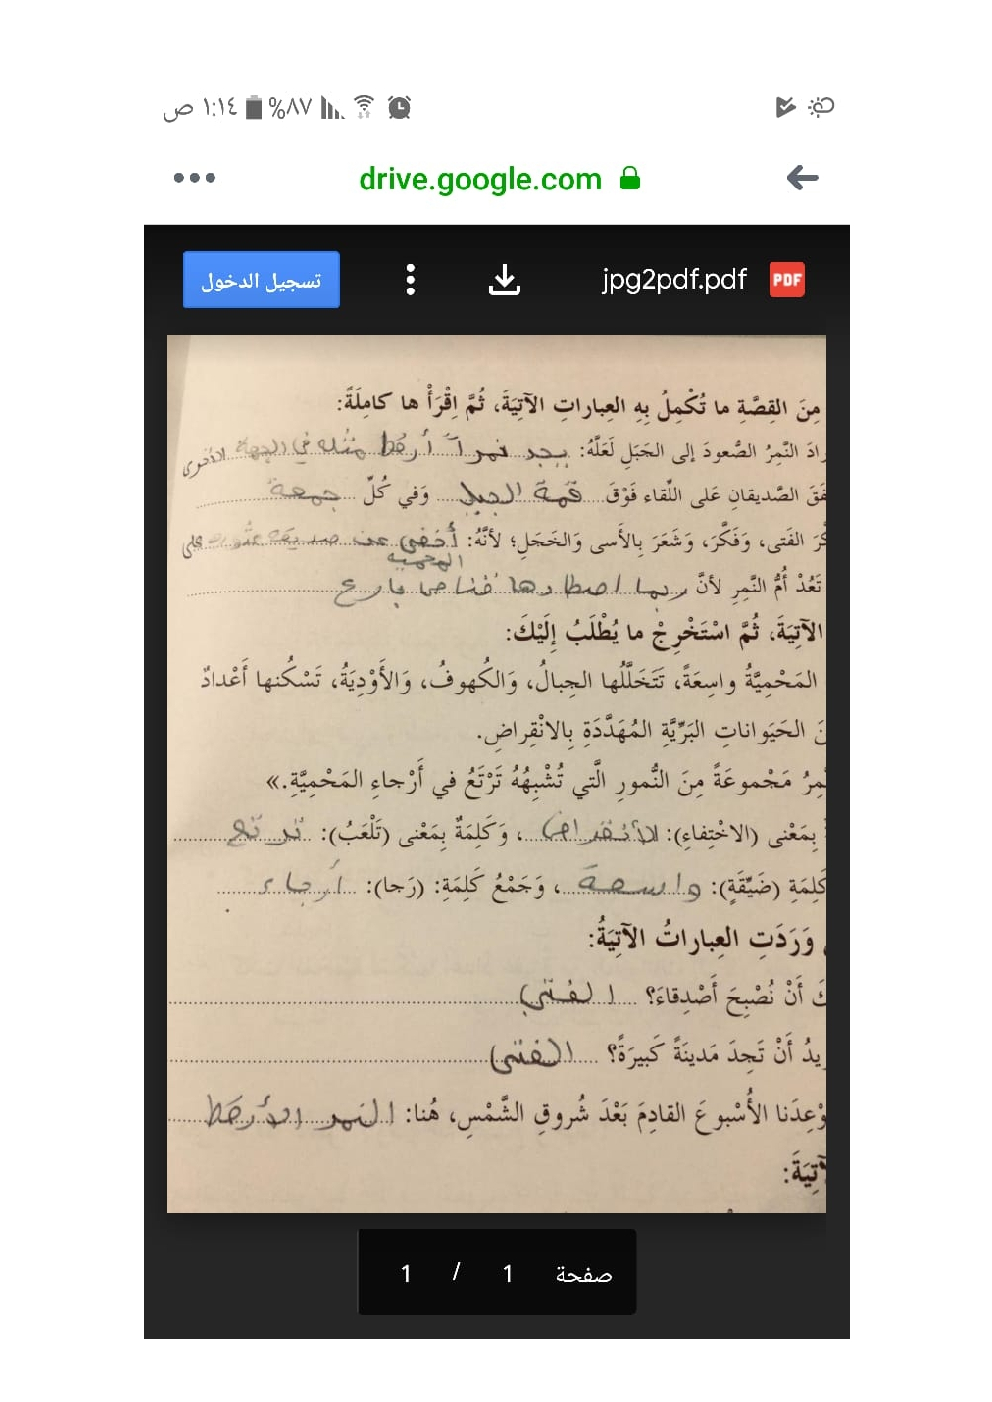 ١:١٤ ص %٨٧
drive.google.com
تسجيل الدخول jpg2pdf.pdf PDF
مِنَ القِصَّةِ ما تُكْمِلُ بِهِ العِباراتِ الآتِيَةَ، ثُمَّ اِقْرَأْ ها كامِلَةً:
رادَ النَّمِرُ الصُّعودَ إلى الجَبَلِ لَعَلَّهُ: يجد نمراً أرقط مثله في الجهة الأخرى
فَقَ الصَّديقانِ عَلى اللِّقاء فَوْقَ قمة الجبل وَفي كُلِّ جمعة
كَّرَ الفَتى، وَفَكَّرَ، وَشَعَرَ بِالأَسى وَالخَجَلِ؛ لأنَّهُ: أخفى عن صديقه عثوره على
المحمية
تَعُدْ أُمُّ النَّمِرِ لأنَّ ربما اصطادها قناص بارع
الآتِيَةَ، ثُمَّ اسْتَخْرِجْ ما يُطْلَبُ إِلَيْكَ:
المَحْمِيَّةُ واسِعَةً، تَتَخَلَّلُها الجِبالُ، وَالكُهوفُ، وَالأَوْدِيَةُ، تَسْكُنها أَعْدادٌ
نَ الحَيَواناتِ البَرِّيَّةِ المُهَدَّدَةِ بِالانْقِراضِ.
لنَّمِرُ مَجْموعَةً مِنَ النُّمورِ الَّتي تُشْبِهُهُ تَرْتَعُ في أَرْجاءِ المَحْمِيَّةِ.»
بِمَعْنى (الاخْتِفاءِ): الأنقراض، وَكَلِمَةٌ بِمَعْنى (تَلْعَبُ): ترتع
كَلِمَةِ (ضَيِّقَةٍ): واسعة، وَجَمْعُ كَلِمَةِ: (رَجا): أرجاء
وَرَدَتِ العِباراتُ الآتِيَةُ:
كَ أَنْ نُصْبِحَ أَصْدِقاءَ؟ الفتى
ريدُ أَنْ تَجِدَ مَدينَةً كَبيرَةً؟ الفتى
وْعِدَنا الأُسْبوعَ القادِمَ بَعْدَ شُروقِ الشَّمْسِ، هُنا: النمر الأرقط
لآتِيَةَ:
صفحة 1 / 1